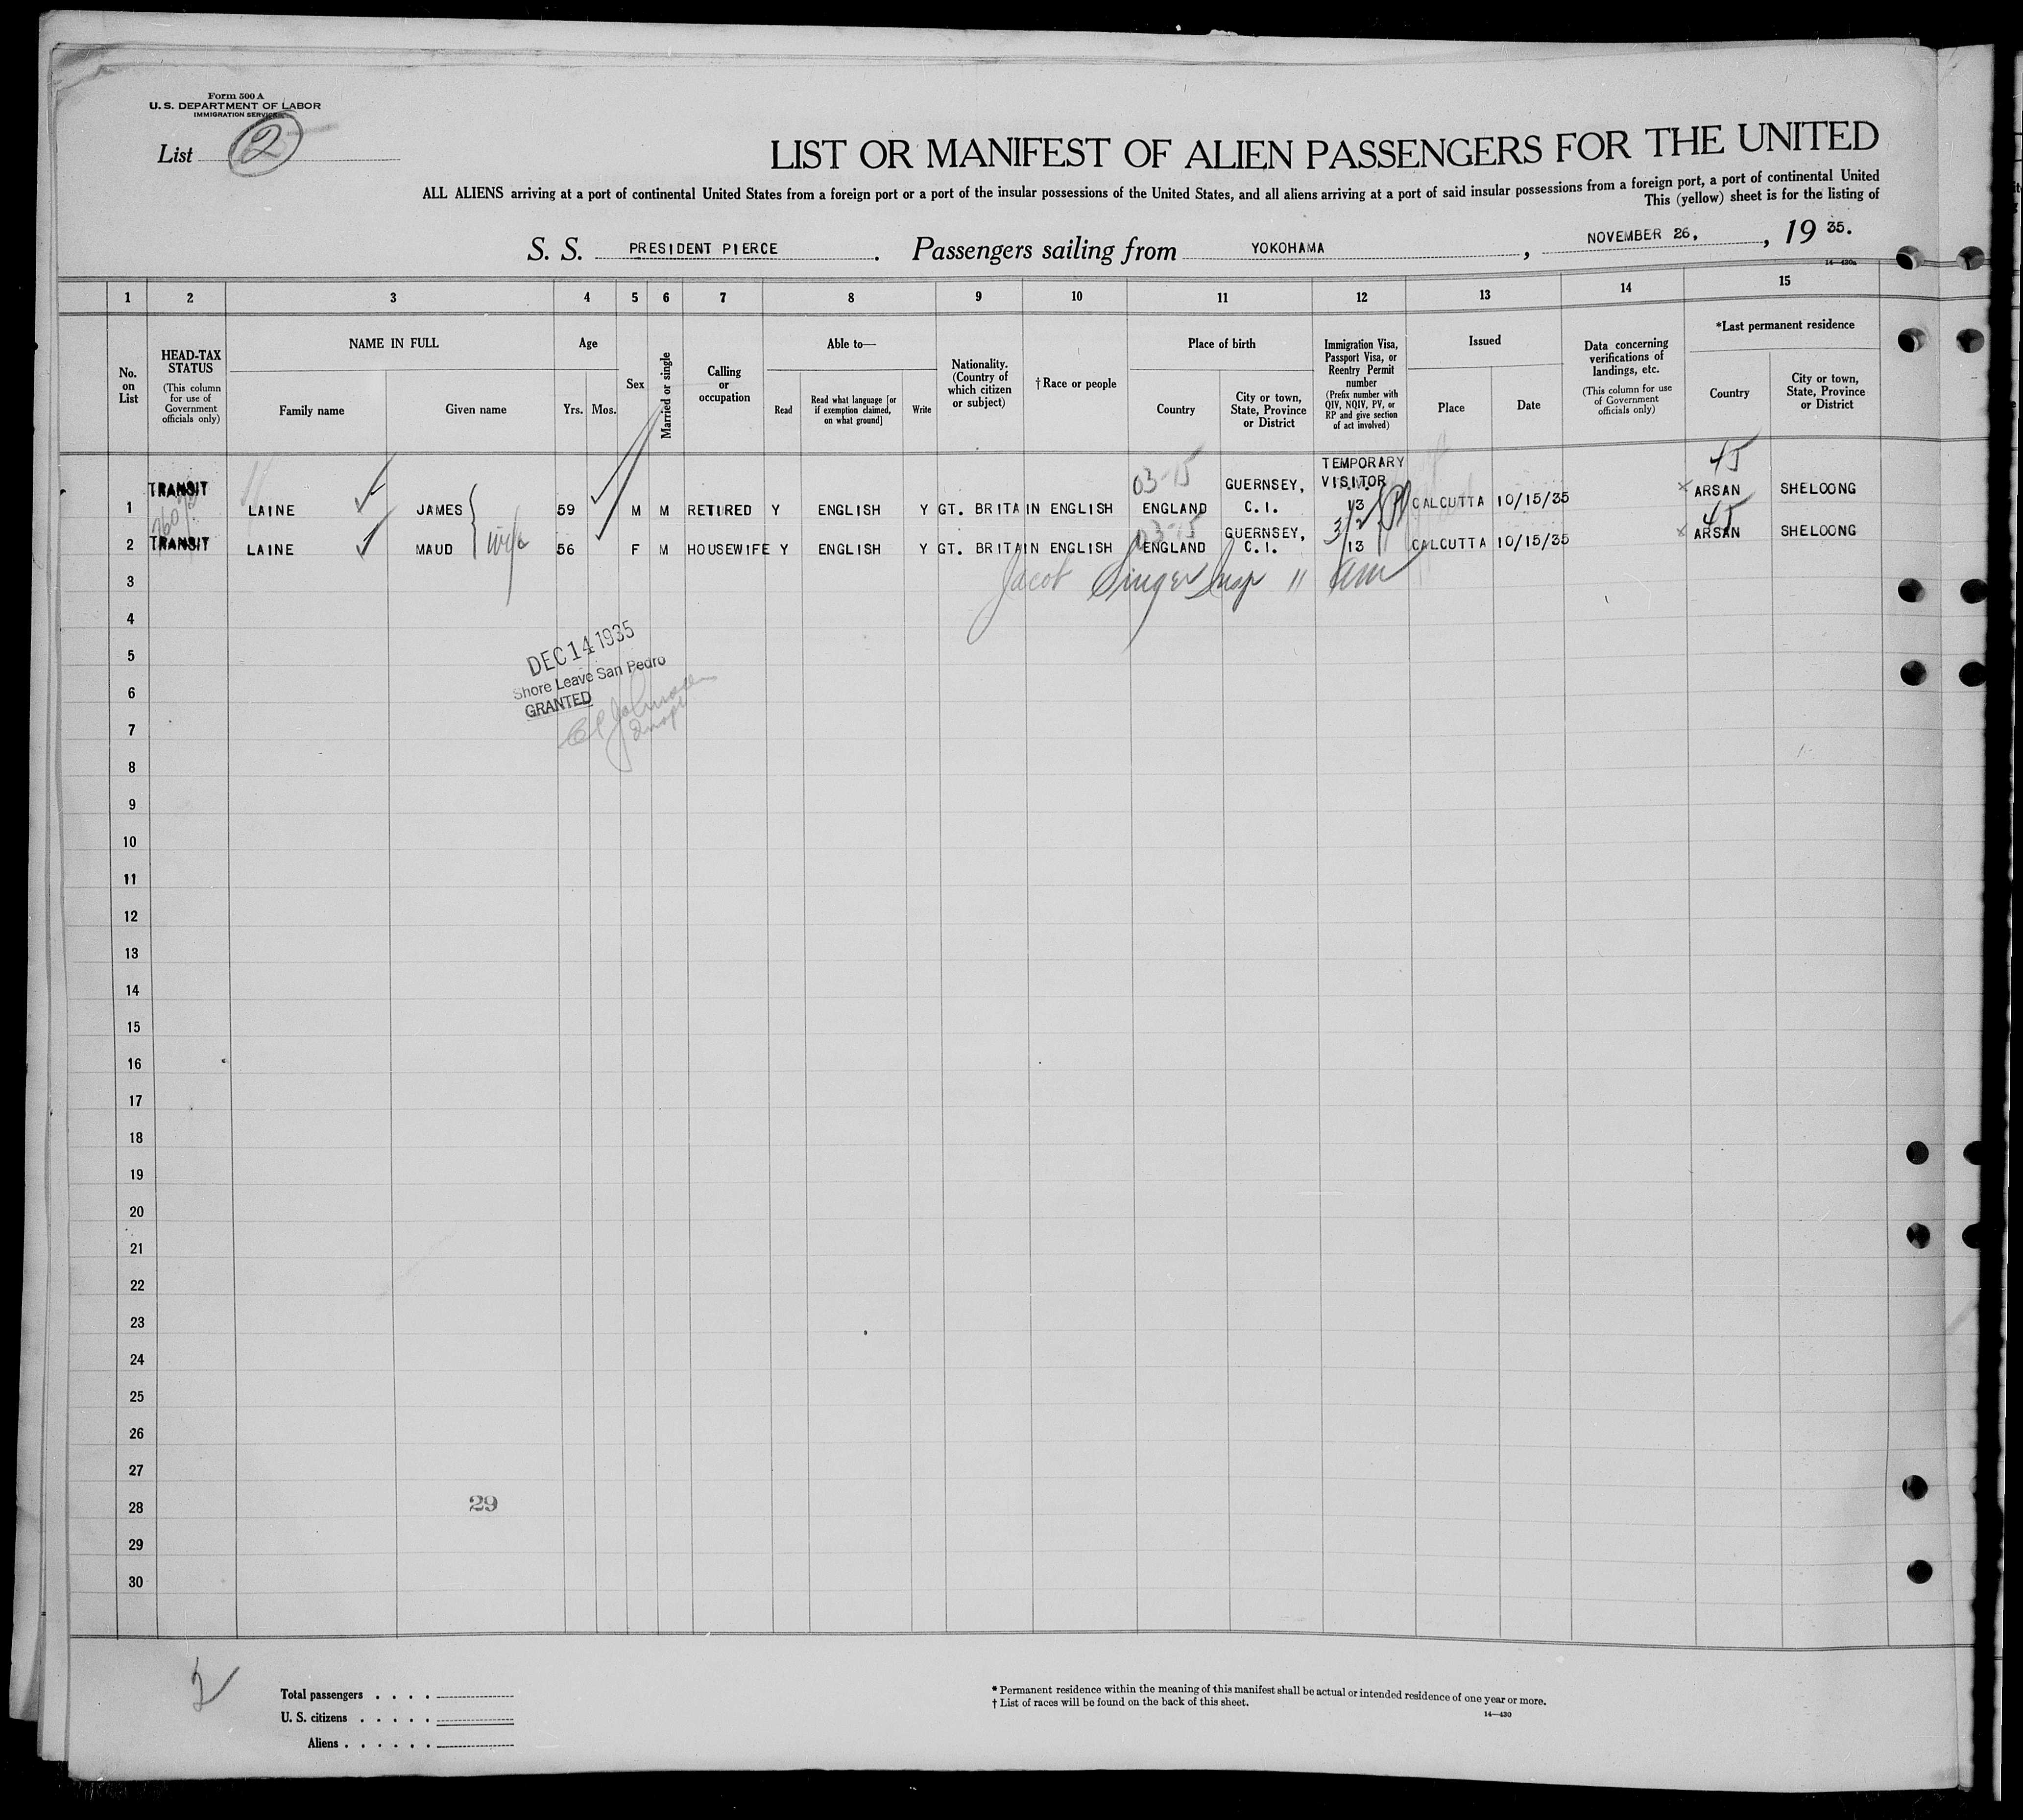 Form 500 A
U. S. DEPARTMENT OF LABOR
IMMIGRATION SERVICE
List 2
LIST OR MANIFEST OF ALIEN PASSENGERS FOR THE UNITED
ALL ALIENS arriving at a port of continental United States from a foreign port or a port of the insular possessions of the United States, and all aliens arriving at a port of said insular possessions from a foreign port, a port of continental United
This (yellow) sheet is for the listing of
S. S. PRESIDENT PIERCE. Passengers sailing from YOKOHAMA, NOVEMBER 26, , 19 35.
14—430a
1 2 3 4 5 6 7 8 9 10 11 12 13 14 15
No. on List
HEAD-TAX STATUS
(This column for use of Government officials only)
NAME IN FULL
Family name
Given name
Age
Yrs.
Mos.
Sex
Married or single
Calling or occupation
Able to—
Read
Read what language [or if exemption claimed, on what ground]
Write
Nationality. (Country of which citizen or subject)
† Race or people
Place of birth
Country
City or town, State, Province or District
Immigration Visa, Passport Visa, or Reentry Permit number
(Prefix number with QIV, NQIV, PV, or RP and give section of act involved)
Issued
Place
Date
Data concerning verifications of landings, etc.
(This column for use of Government officials only)
*Last permanent residence
Country
City or town, State, Province or District
03-15 TEMPORARY 45
TRANSIT GUERNSEY, VISITOR
1 LAINE JAMES 59 M M RETIRED Y ENGLISH Y GT. BRITAIN ENGLISH ENGLAND C.I. 13 CALCUTTA 10/15/35 ARSAN SHELOONG
wife 03-15 GUERNSEY, 3/2 45
2 TRANSIT LAINE MAUD 56 F M HOUSEWIFE Y ENGLISH Y GT. BRITAIN ENGLISH ENGLAND C.I. 13 CALCUTTA 10/15/35 ARSAN SHELOONG
3 Jacob Singer Insp
4
5
DEC 14 1935
Shore Leave San Pedro
GRANTED
6
Johnson
Inspt
7
8
9
10
11
12
13
14
15
16
17
18
19
20
21
22
23
24
25
26
27
28 29
29
30
2
Total passengers . . . .
U. S. citizens . . . . .
Aliens . . . . . .
* Permanent residence within the meaning of this manifest shall be actual or intended residence of one year or more.
† List of races will be found on the back of this sheet.
14—430